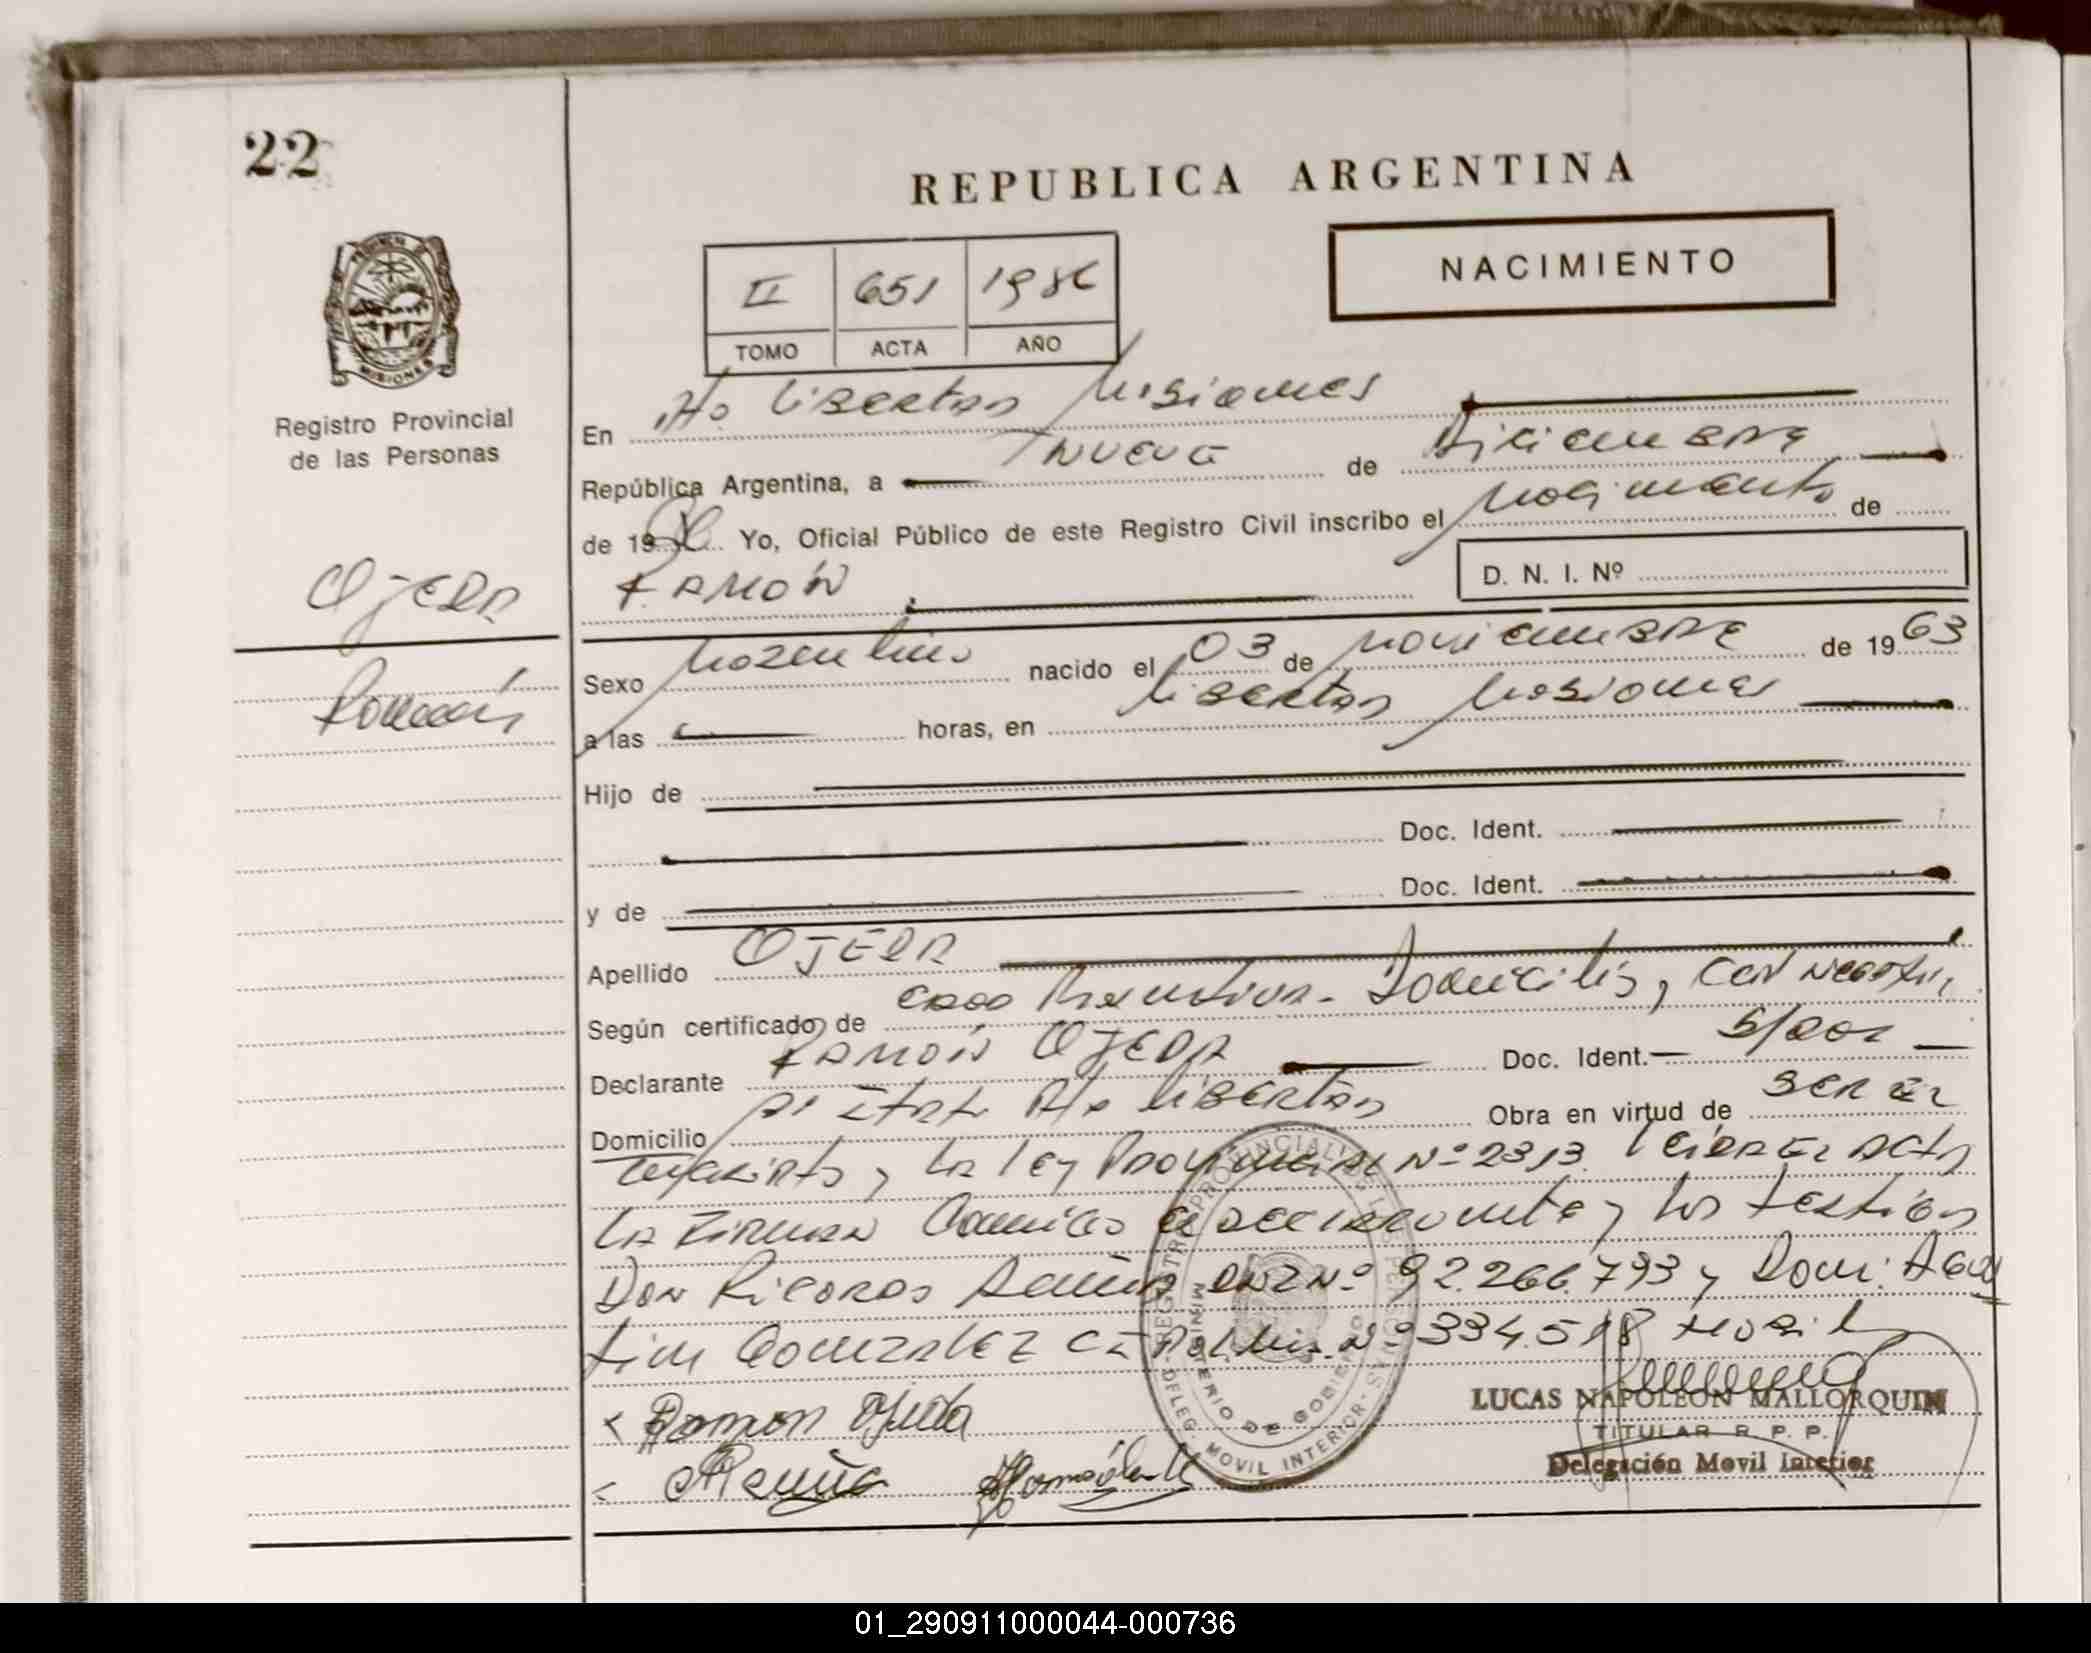 22
REPUBLICA ARGENTINA
NACIMIENTO
II 651 1986
TOMO ACTA AÑO
PROVINCIA DE
MISIONES
Registro Provincial
de las Personas
En Pto Libertad Misiones
República Argentina, a nueve de Diciembre
de 1986 Yo, Oficial Público de este Registro Civil inscribo el nacimiento de
RAMÓN
D. N. I. Nº
OJEDA
Ramón
Sexo Masculino nacido el 03 de noviembre de 1963
a las horas, en Libertad Misiones
Hijo de
Doc. Ident.
y de Doc. Ident.
Apellido OJEDA
Según certificado de Domicilio, Con Negativa
Declarante RAMÓN OJEDA Doc. Ident.
Domicilio Pto Libertad Obra en virtud de SER EL
y La Ley Provincial Nº 2313. Leída El Acta
La Firman Conmigo el declarante y los testigos
Don Ricardo DNI Nº 92.266.793 y Don: Agus
tin Gonzalez Nº 334.518
Ramon Ojeda
LUCAS NAPOLEON MALLORQUIN
TITULAR R. P. P.
Delegación Movil Interior
REGISTRO PROVINCIAL DE LAS PERSONAS
MINISTERIO DE GOBIERNO
DELEG. MOVIL INTERIOR
01_290911000044-000736